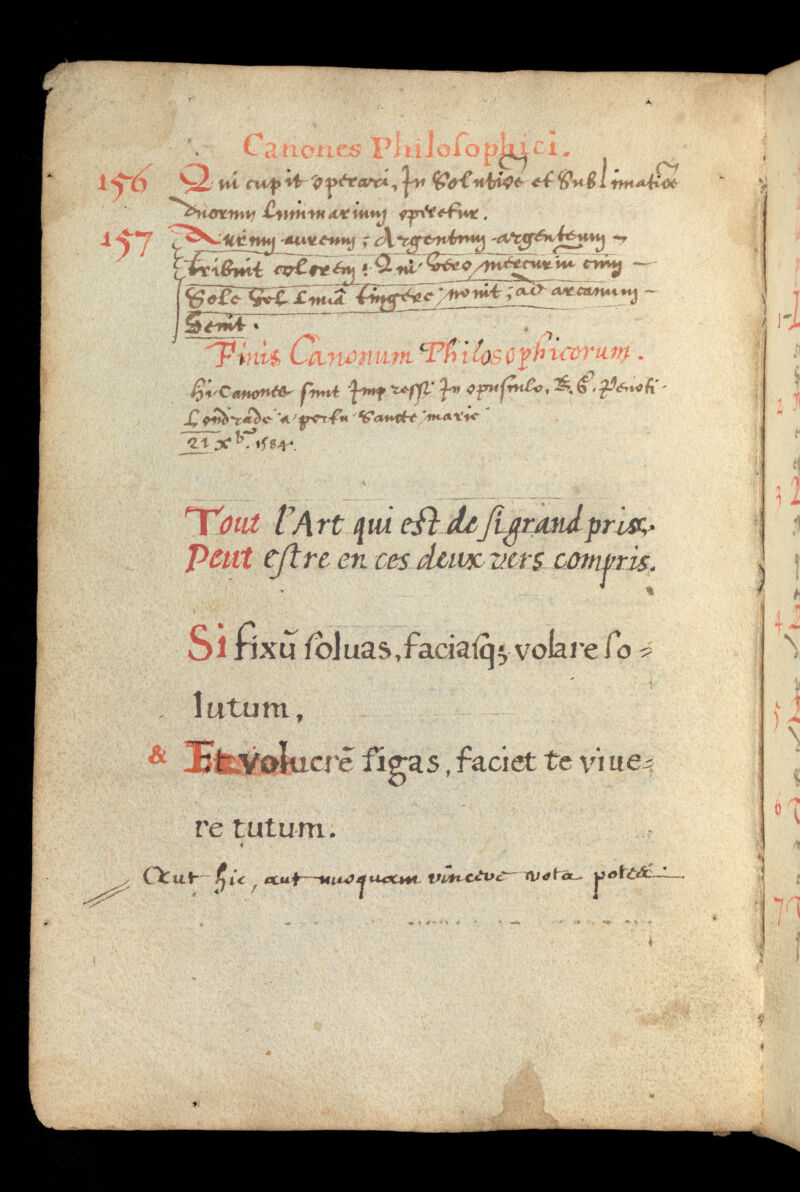 Canones Philosophici.
156 Qui cupit operari, In Solutiõe et Sublimatiõe
duorum Luminarium operetur.
157 Aurum aureum; Argentum argenteum
tribuit colorem: Qui vero mercurium cum
Sole vel Luna tingere novit; ad arcanum
venit.
Finis Canonum Philosophicorum.
Hi Canones sunt Impressi In opusculo, B. G. Penoti
a portu Sancte marie
21 Xb. 1584.
Tout l'Art qui est de si grand prix,
Peut estre en ces deux vers compris.
Si fixũ soluas, faciasq; volare so=
lutum,
& Et volucrẽ figas, faciet te viue=
re tutum.
Aut hic, aut nusquam vincere nota potest: